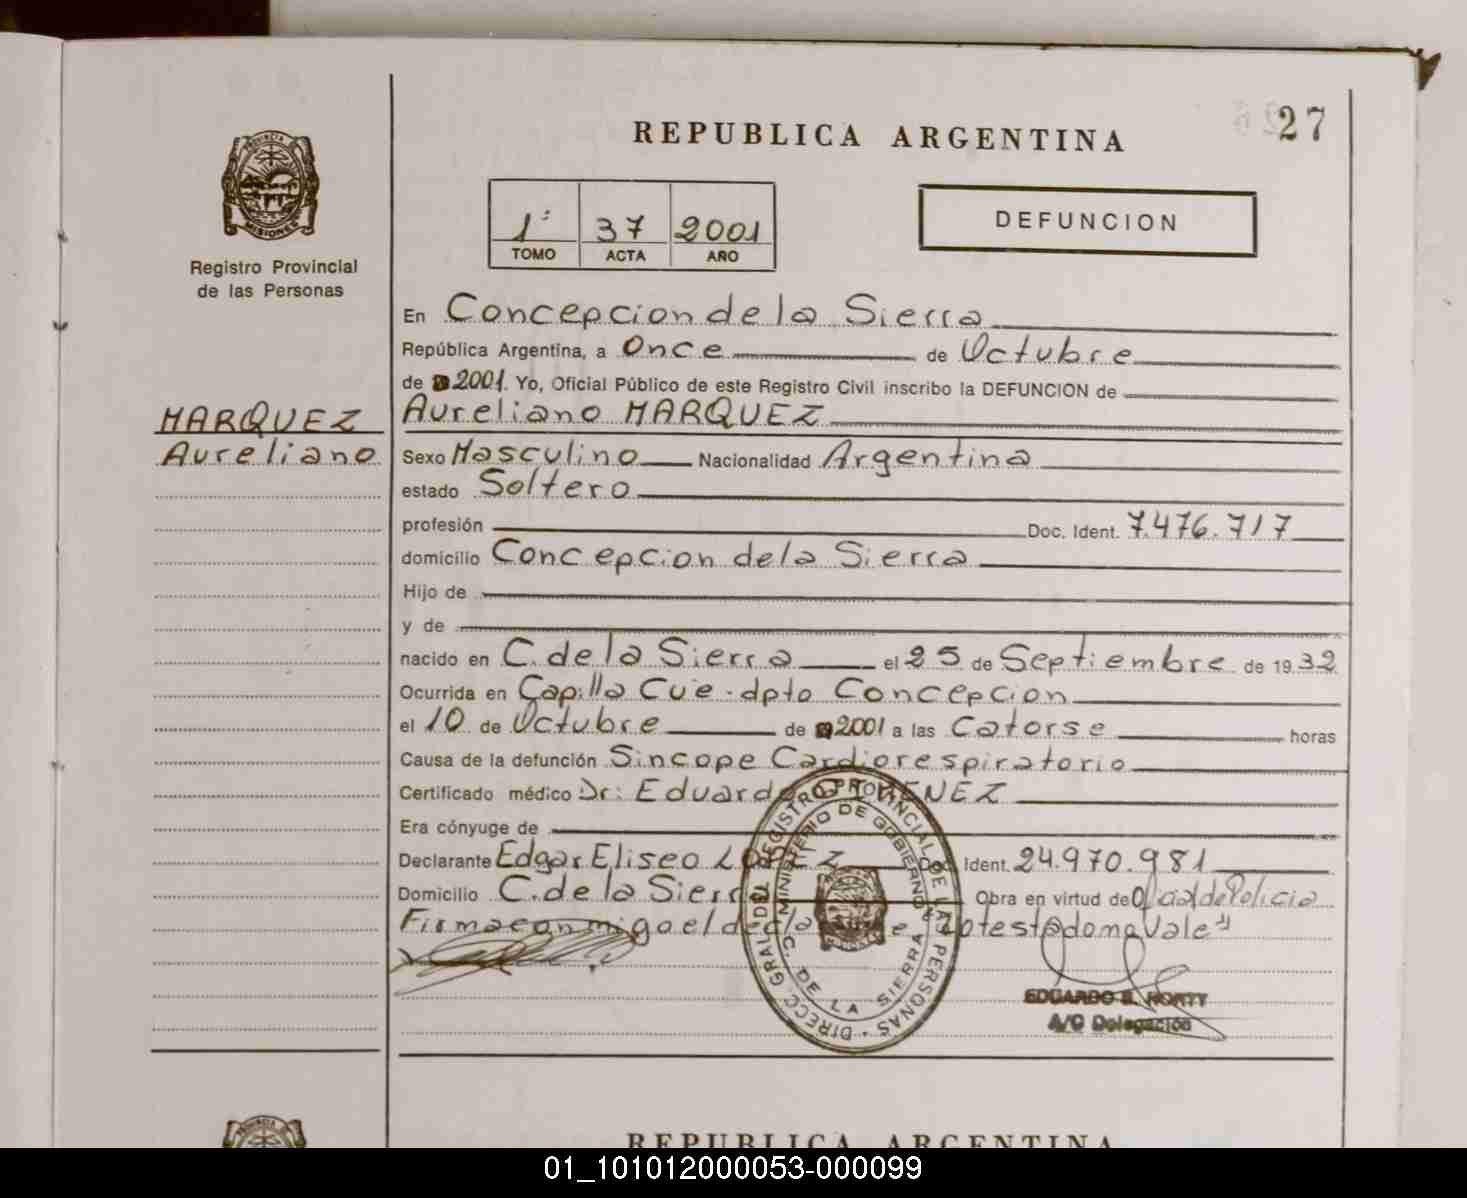 REPUBLICA ARGENTINA
27
PROVINCIA DE
MISIONES
Registro Provincial
de las Personas
1º 37 2001
TOMO ACTA AÑO
DEFUNCION
En Concepcion de la Sierra
República Argentina, a Once de Octubre
de 2001. Yo, Oficial Público de este Registro Civil inscribo la DEFUNCION de
MARQUEZ
Aureliano
Aureliano MARQUEZ
Sexo Masculino Nacionalidad Argentina
estado Soltero
profesión Doc. Ident. 7.476.717
domicilio Concepcion de la Sierra
Hijo de
y de
nacido en C. de la Sierra el 25 de Septiembre de 1932
Ocurrida en Capilla Cue - dpto Concepcion
el 10 de Octubre de 2001 a las Catorse horas
Causa de la defunción Sincope Cardiorespiratorio
Certificado médico Dr: Eduardo
Era cónyuge de
Declarante Edgar Eliseo LOPEZ Doc. Ident. 24.970.981
Domicilio C. de la Sierra Obra en virtud de Of. de Policia
Firma conmigo el declarante "Lo testado no vale"
DIRECC. GRAL. DEL REGISTRO PROVINCIAL DE LAS PERSONAS
MINISTERIO DE GOBIERNO
C. DE LA SIERRA
EDUARDO
A/C Delegación
REPUBLICA ARGENTINA
01_101012000053-000099